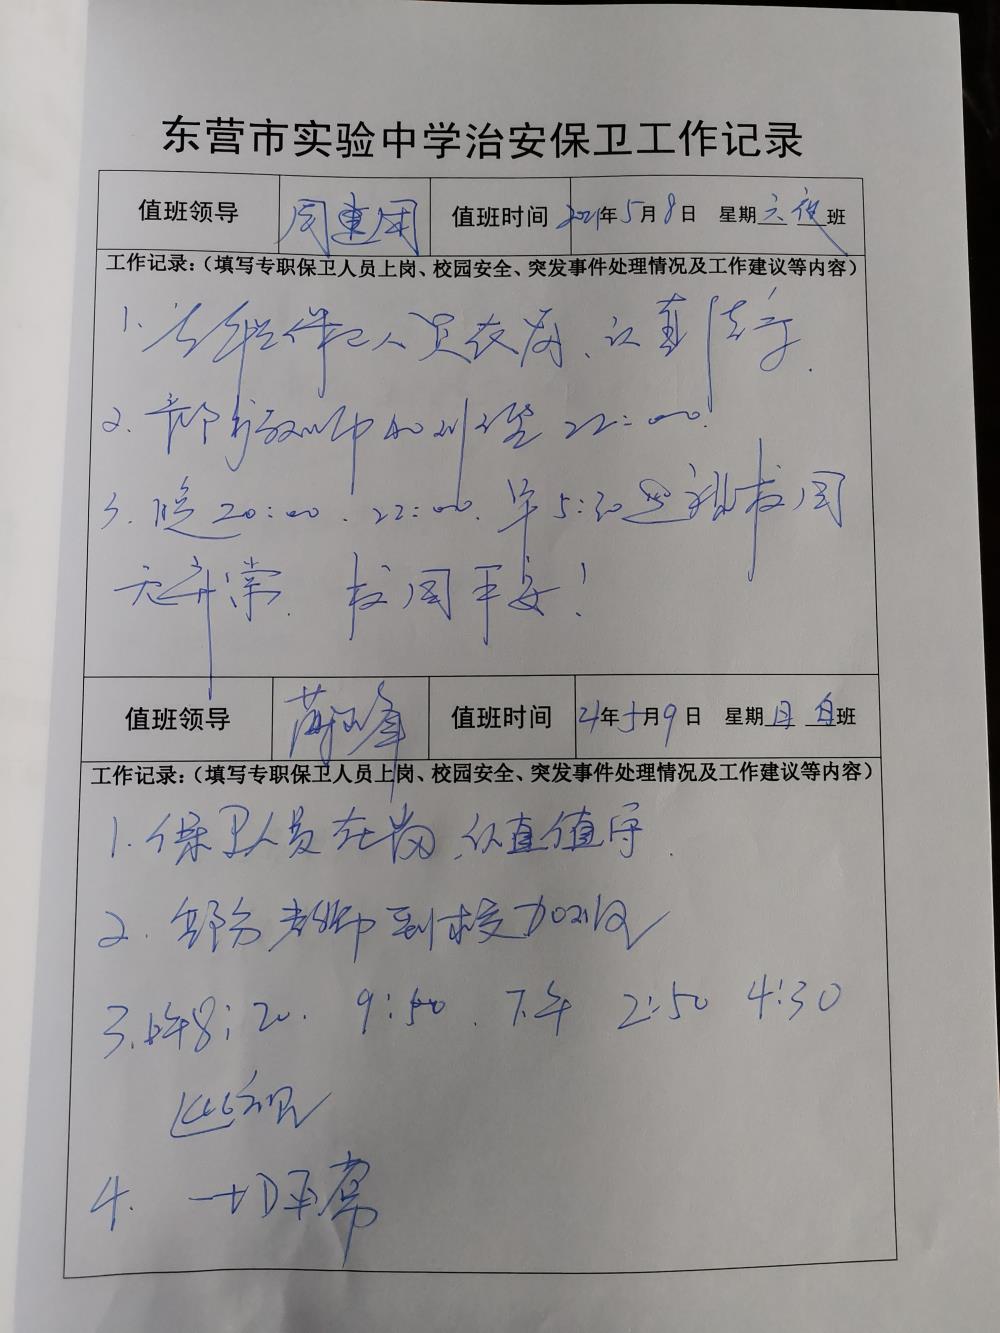 东营市实验中学治安保卫工作记录
值班领导 周建国 值班时间 2021年5月8日 星期六 夜班
工作记录:(填写专职保卫人员上岗、校园安全、突发事件处理情况及工作建议等内容)
1. 保卫人员在岗、认真值守.
2. 部分教师加班至22:00.
3. 晚20:00、22:00、早5:30巡视校园
无异常. 校园平安!
值班领导 峰 值班时间 21年5月9日 星期日 白班
工作记录:(填写专职保卫人员上岗、校园安全、突发事件处理情况及工作建议等内容)
1. 保卫人员在岗、认真值守.
2. 部分老师到校加班
3. 上午8:20. 9:50. 下午 2:50 4:30
巡视
4. 一切正常